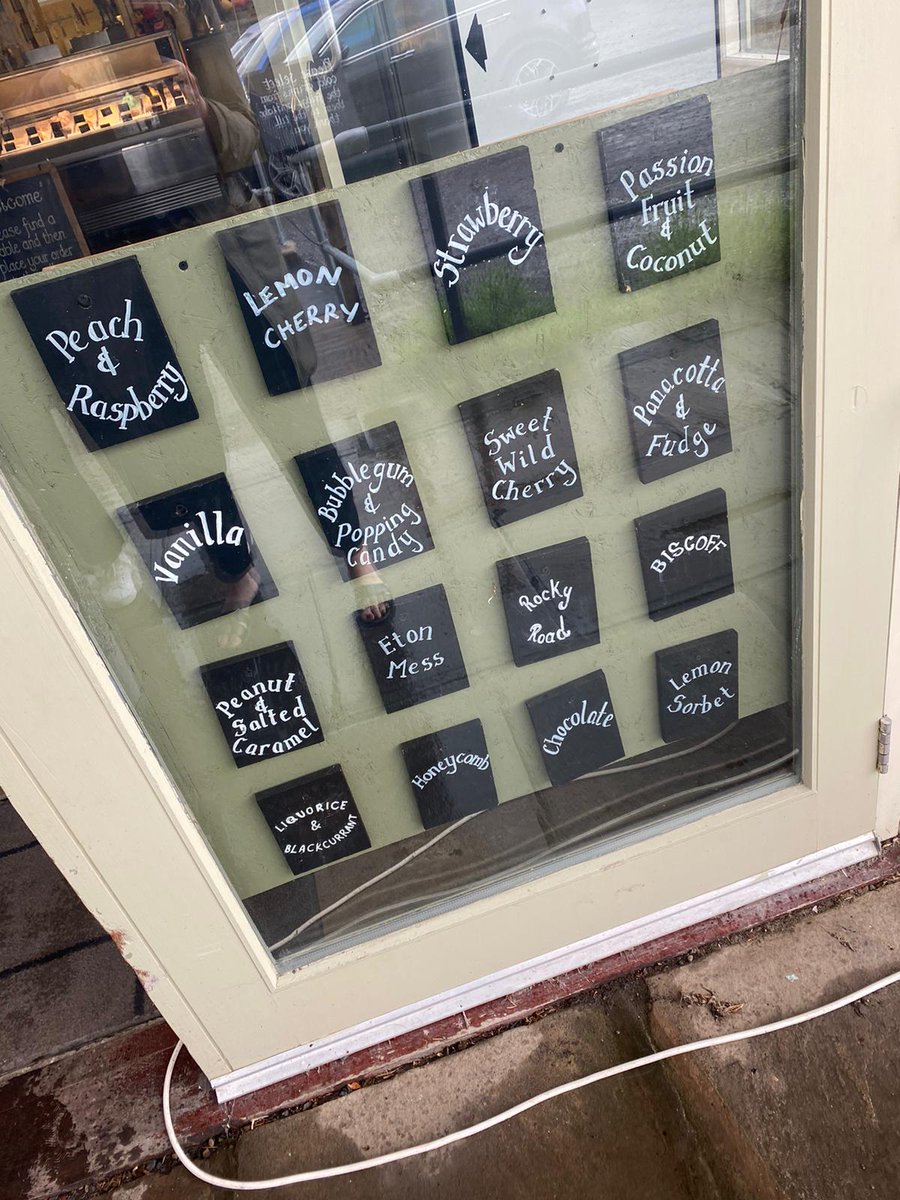 Welcome
Please find a
table and then
place your order
Please Select
Peach
&
Raspberry
LEMON
CHERRY
Strawberry
Passion
Fruit
&
Coconut
Vanilla
Bubblegum
&
Popping
Candy
Sweet
Wild
Cherry
Panacotta
&
Fudge
Peanut
&
Salted
Caramel
Eton
Mess
Rocky
Road
BISCOFF
LIQUORICE
&
BLACKCURRANT
Honeycomb
Chocolate
Lemon
Sorbet